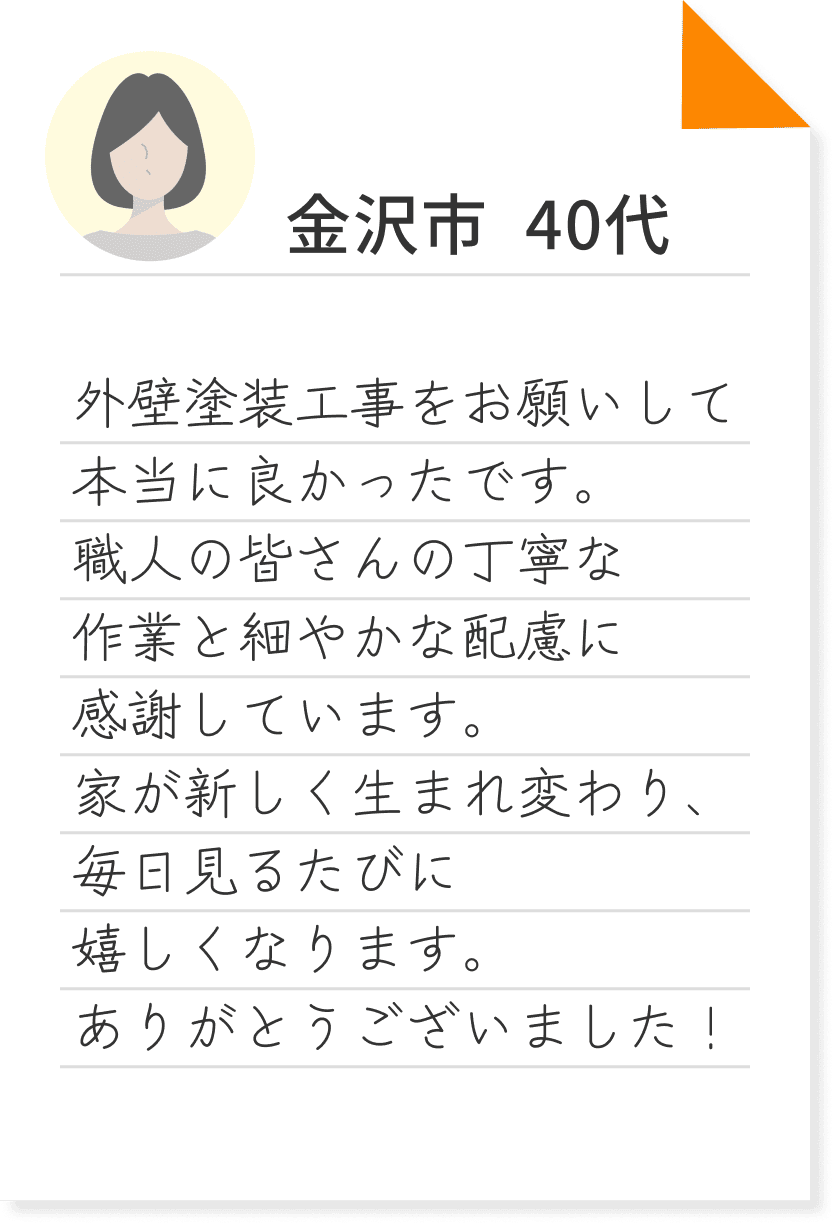 金沢市 40代
外壁塗装工事をお願いして
本当に良かったです。
職人の皆さんの丁寧な
作業と細やかな配慮に
感謝しています。
家が新しく生まれ変わり、
毎日見るたびに
嬉しくなります。
ありがとうございました！